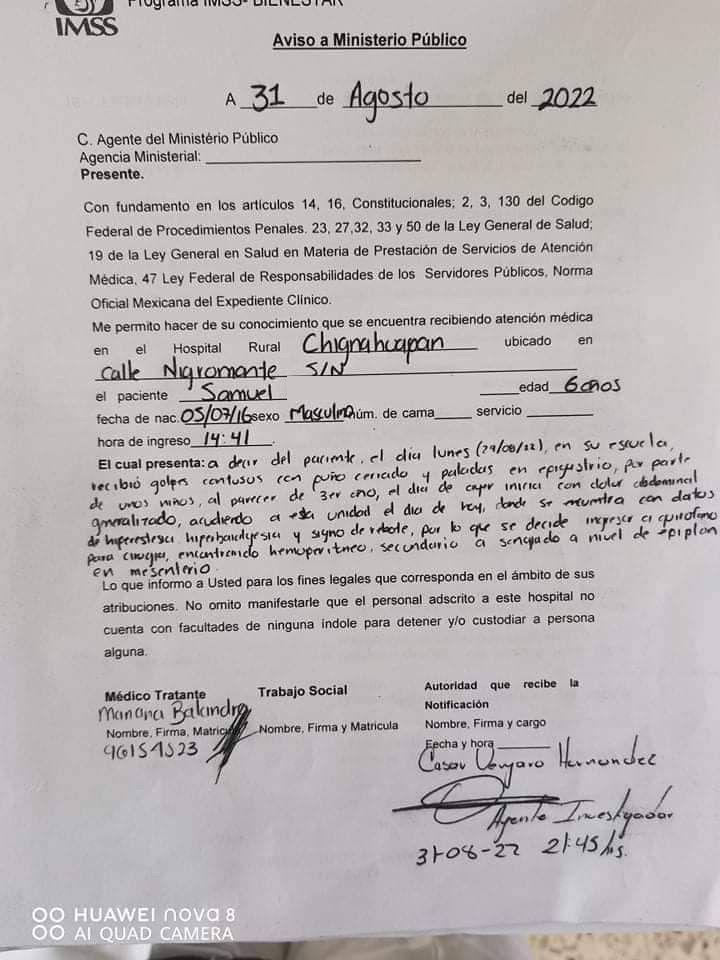 Programa IMSS- BIENESTAR
IMSS
Aviso a Ministerio Público
A 31 de Agosto del 2022
C. Agente del Ministério Público
Agencia Ministerial:
Presente.
Con fundamento en los artículos 14, 16, Constitucionales; 2, 3, 130 del Codigo
Federal de Procedimientos Penales. 23, 27,32, 33 y 50 de la Ley General de Salud;
19 de la Ley General en Salud en Materia de Prestación de Servicios de Atención
Médica, 47 Ley Federal de Responsabilidades de los Servidores Públicos, Norma
Oficial Mexicana del Expediente Clínico.
Me permito hacer de su conocimiento que se encuentra recibiendo atención médica
en el Hospital Rural Chignahuapan ubicado en
calle Nigromante S/N
el paciente Samuel edad 6 años
fecha de nac. 05/07/16 sexo Masculino núm. de cama servicio
hora de ingreso 14:41.
El cual presenta: a decir del paciente, el día lunes (29/08/22), en su escuela,
recibió golpes contusos con puño cerrado y patadas en epigastrio, por parte
de unos niños, al parecer de 3er año, el día de ayer inicia con dolor abdominal
generalizado, acudiendo a esta unidad el día de hoy, donde se muentra con datos
de hiperestesia, hiperbaralgesia y signo de rebote, por lo que se decide ingresar a quirofano
para cirugia, encontrando hemoperitneo, secundario a sangrado a nivel de epiplon
en mesenterio.
Lo que informo a Usted para los fines legales que corresponda en el ámbito de sus
atribuciones. No omito manifestarle que el personal adscrito a este hospital no
cuenta con facultades de ninguna índole para detener y/o custodiar a persona
alguna.
Médico Tratante Trabajo Social Autoridad que recibe la
Notificación
Mariana Balandra
Nombre, Firma, Matricula Nombre, Firma y Matricula Nombre, Firma y cargo
Fecha y hora
Hernandez
Agente Investigador
31-08-22 21:45 hs.
HUAWEI nova 8
AI QUAD CAMERA